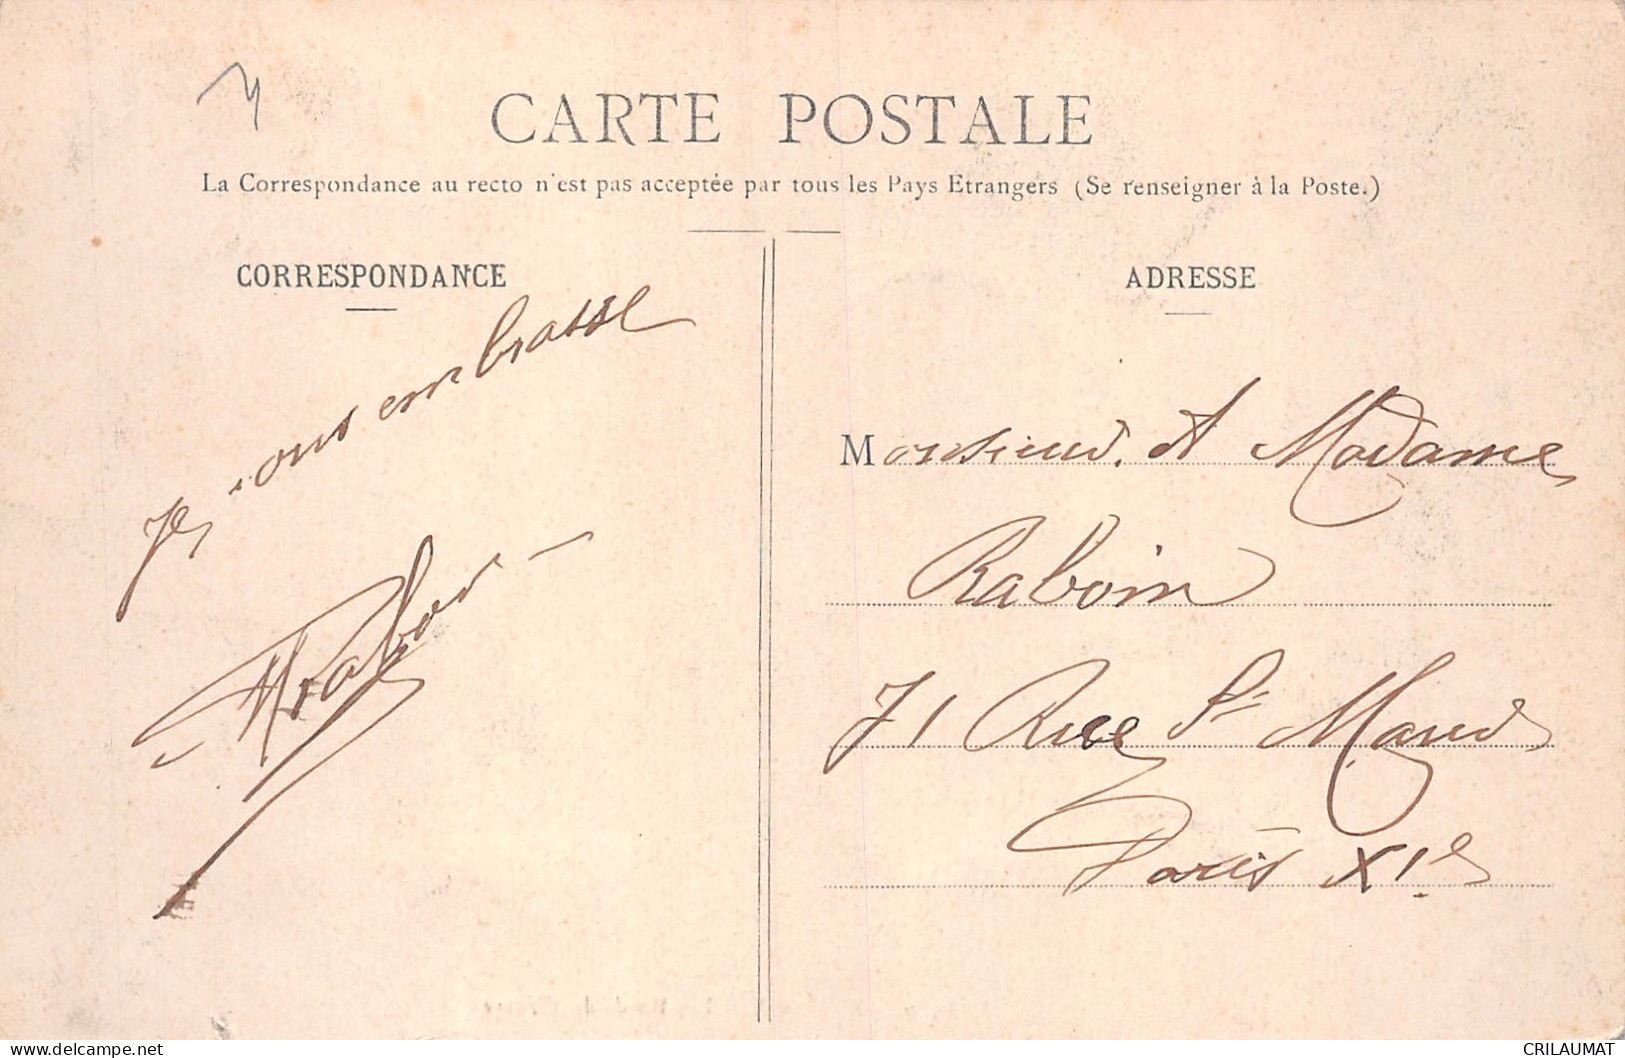 CARTE POSTALE
La Correspondance au recto n'est pas acceptée par tous les Pays Etrangers (Se renseigner à la Poste.)
CORRESPONDANCE
Je vous embrasse
ADRESSE
Monsieur. et Madame
Raboin
71 Rue St Maur
Paris XIe
CRILAUMAT